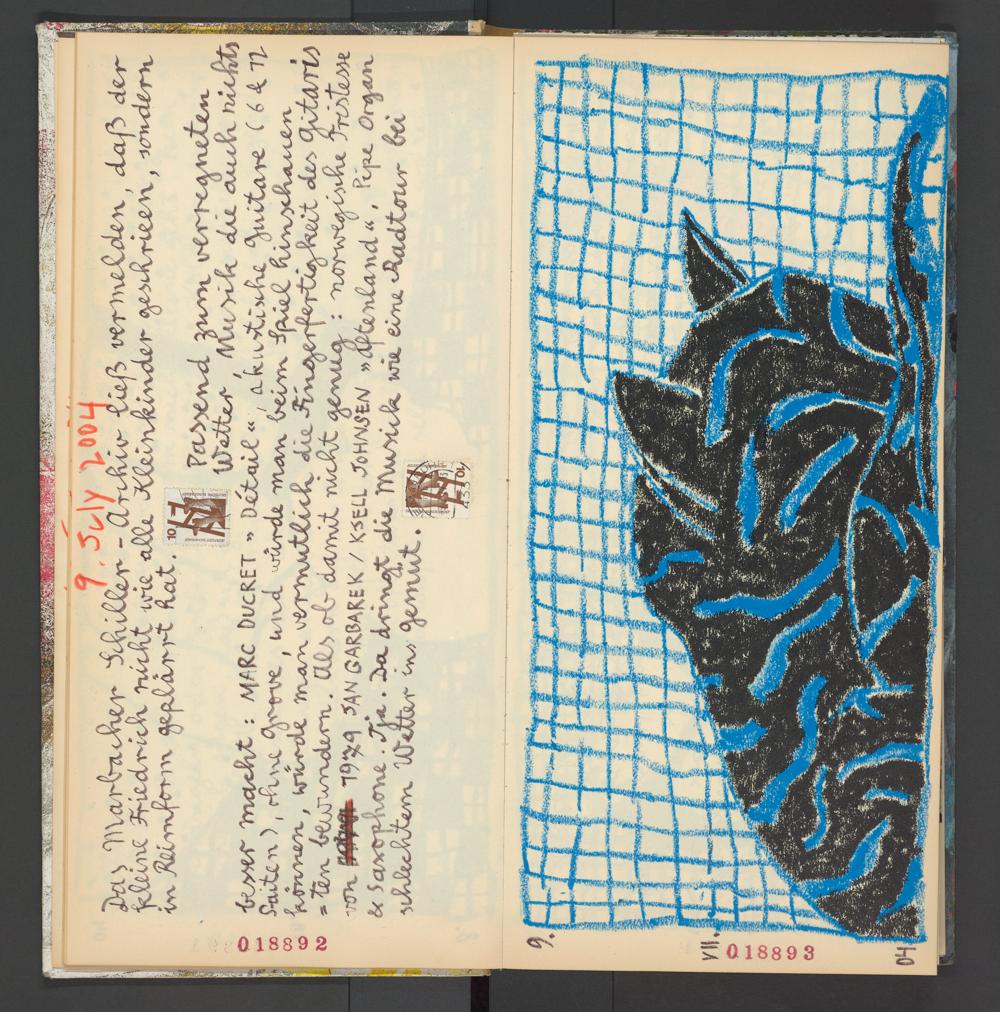 9. July 2004
Das Marbacher Schiller-Archiv ließ vermelden, daß der
kleine Friedrich nicht wie alle Kleinkinder geschrieen, sondern
in Reimform geplärrt hat.
Passend zum verregneten
Wetter Musik die auch nichts
besser macht: MARC DUCRET »Détail«, akustische Guitare (6 & 12
Saiten), ohne Grove, und würde man beim Spiel hinschauen
können, würde man vermutlich die Fingerfertigkeit des Gitaris
=ten bewundern. Als ob damit nicht genug: norwegische Tristesse
von 1979 JAN GARBAREK / KJELL JOHNSEN »Aftenland«, Pipe Organ
& Saxophone. Tja. Da dringt die Musick wie eine Radtour bei
schlechtem Wetter ins gemüt.
10
018892
9.
VII.
04
018893